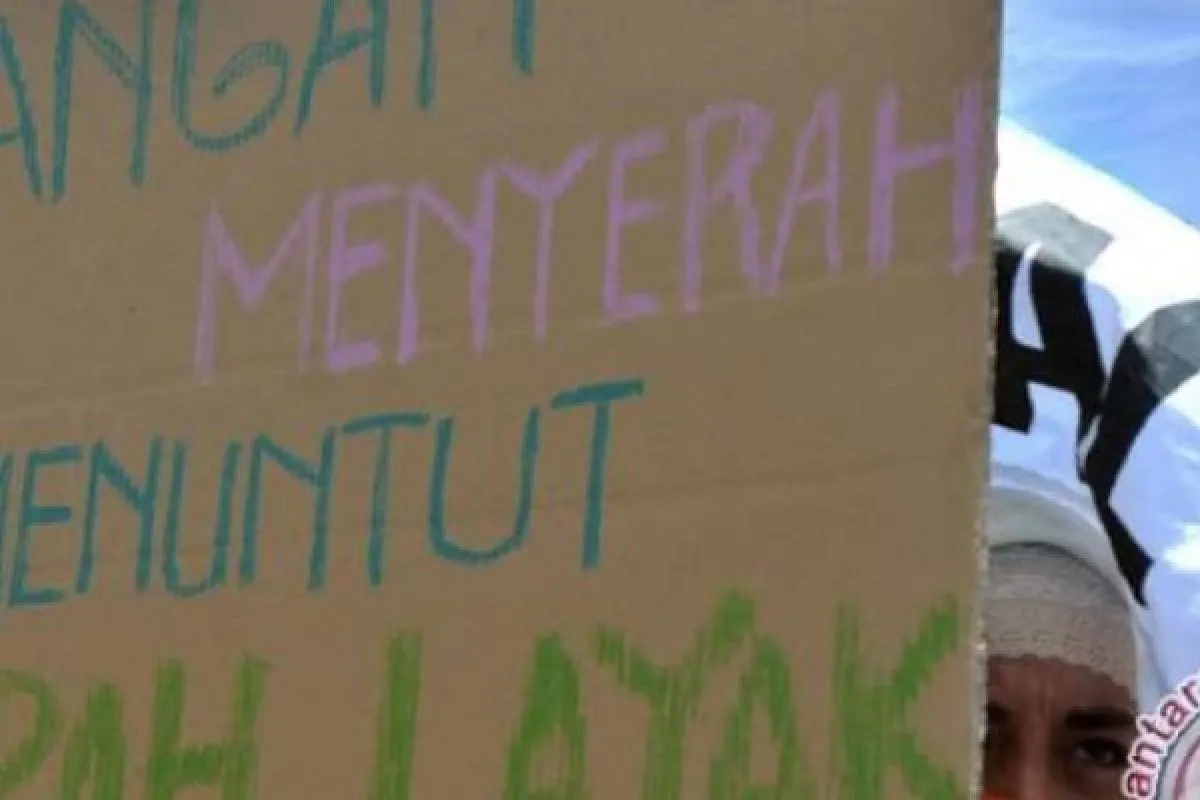 ANGAN
MENYERAH
MENUNTUT
PAH LAYAK
antar